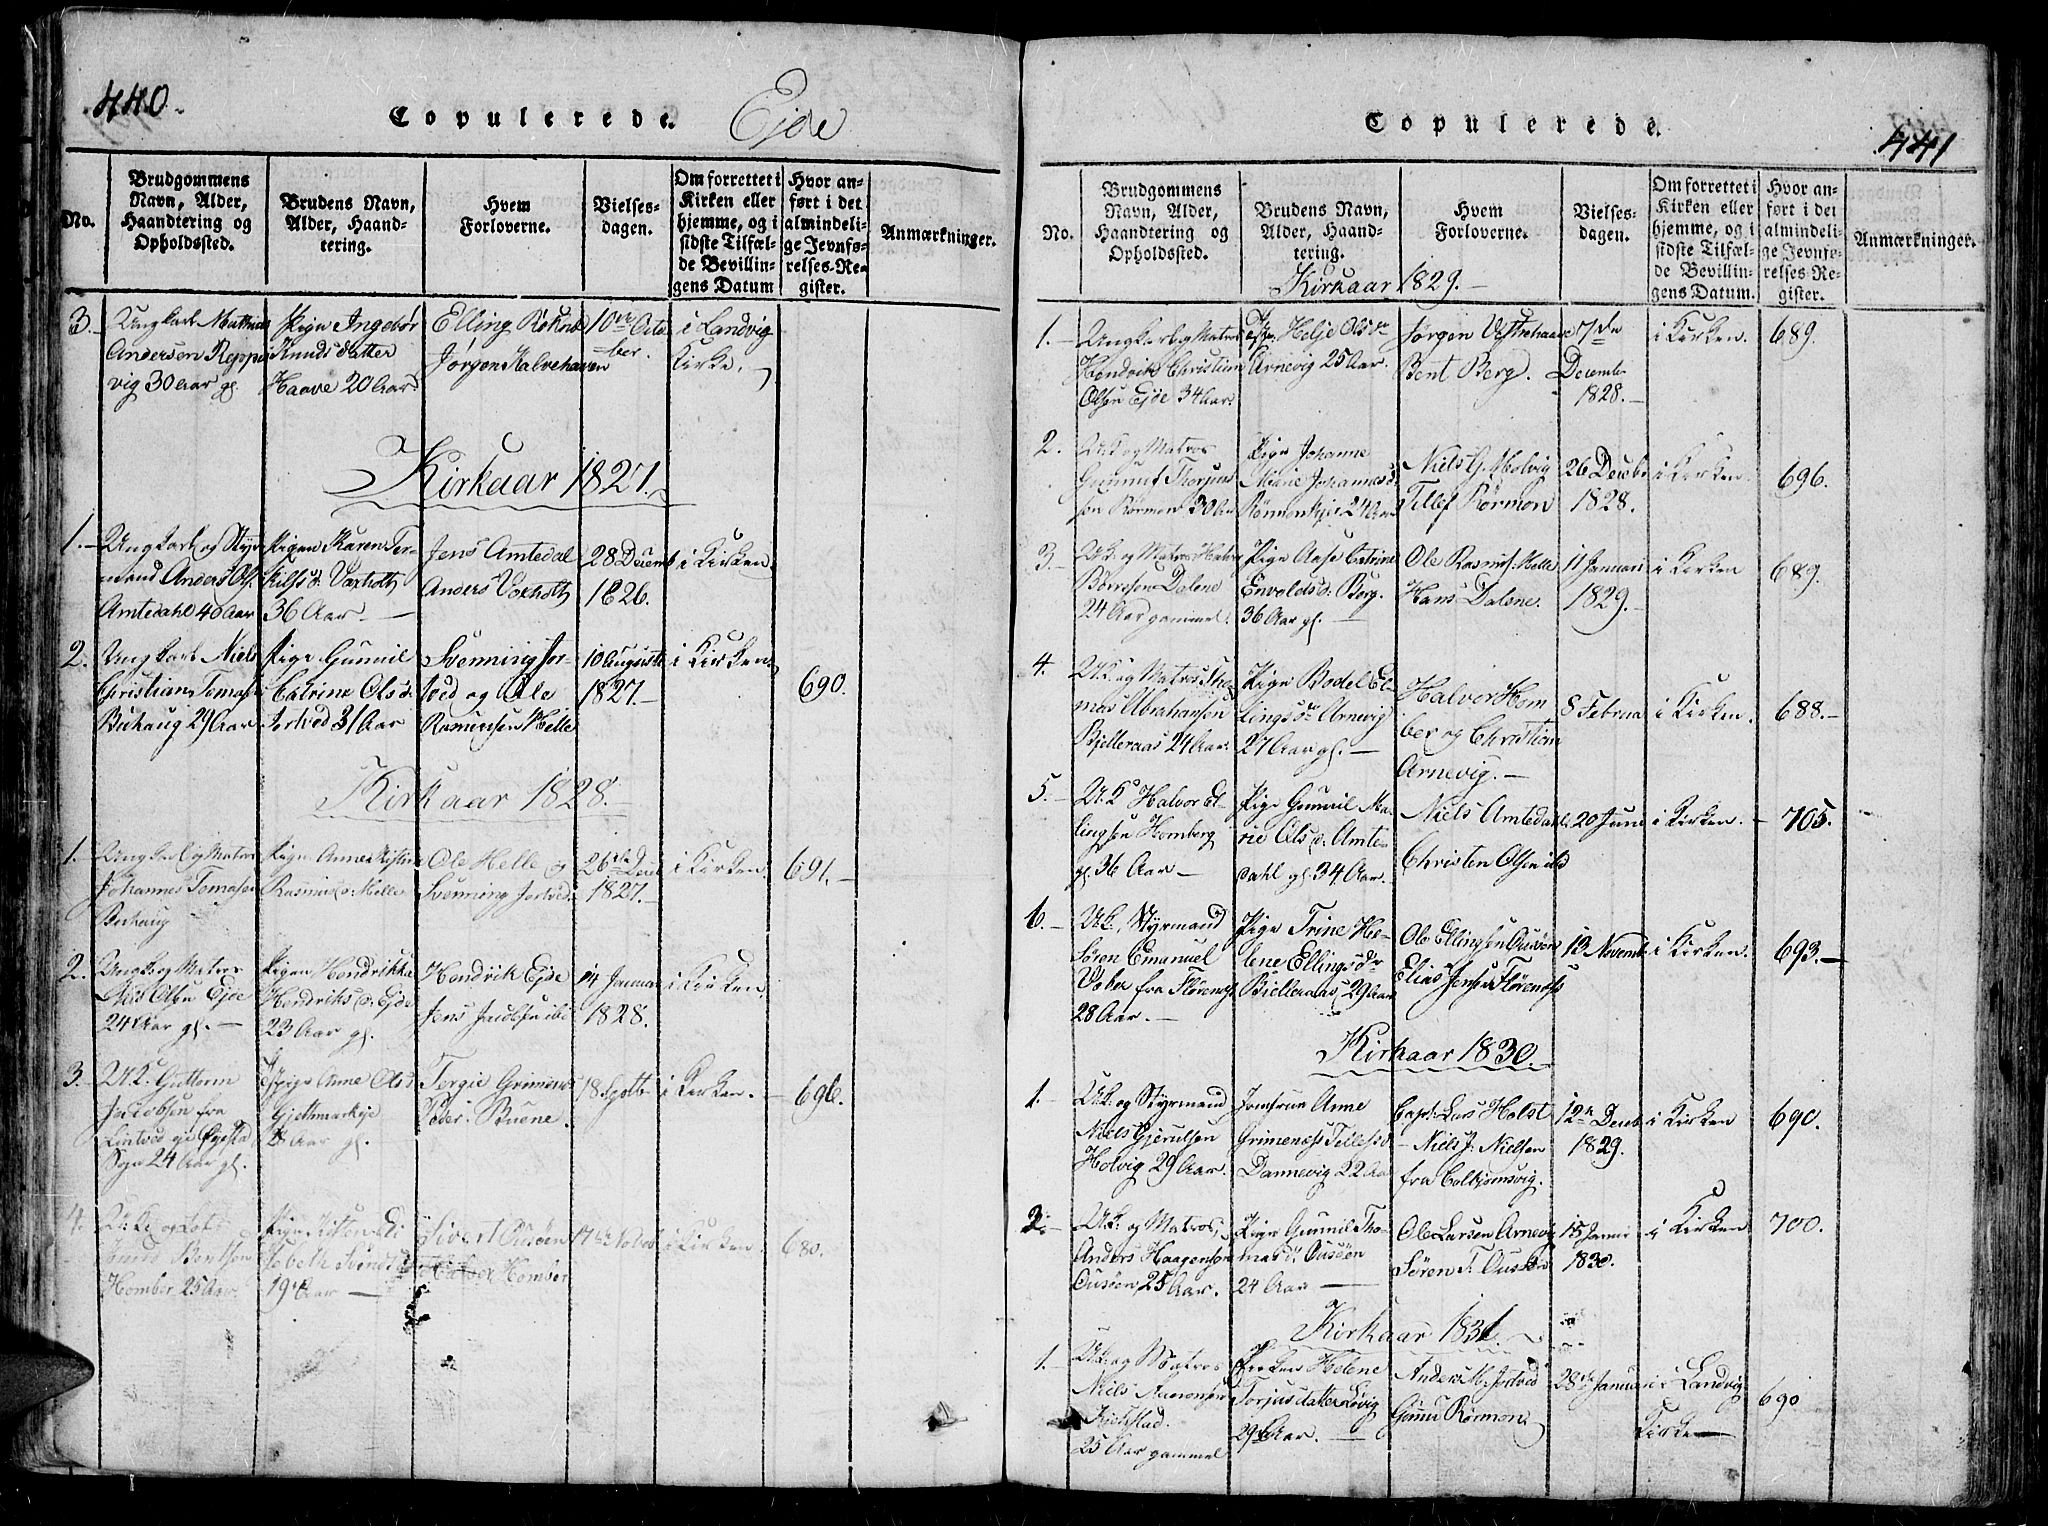 440.
Copulerede.
Ejde
No.
Brudgommens Navn, Alder, Haandtering og Opholdssted.
Brudens Navn, Alder, Haandtering.
Hvem Forloverne.
Vielsesdagen.
Om forrettet i Kirken eller hjemme, og i sidste Tilfælde Bevillingens Datum
Hvor anført i det almindelige Jevnførelses-Register.
Anmærkninger.
3. Ungkarl Mathias Andersen Reppevig 30 Aar gl.
Pige Ingebór Knudsdatter Haave 20 Aar
Elling Röknæs Jørgen Kalvehaven
10de October.
i Landvig Kirke.
Kirkaar 1827.
1. Ungkarl og Styrmand Anders Ols. Amtedahl 40 Aar
Pigen Karen Terkilsd: Voxholt 36 Aar.
Jens Amtedal Anders Voxholt
28 Decemb 1826.
i Kirken.
2. Ungkarl Niels Christian Tomasen Buhaug 29 Aar
Pige Gunnil Catrine Olsd. Jortved 31 Aar
Svenning Jortved og Ole Rasmusen Helle
10 Auguste 1827.
i Kirken
690.
Kirkaar 1828.
1. Ungkarl og Matros Johannes Tomasen Buhaug
Pige Anne Kistine Rasmusd: Helle
Ole Helle og Svenning Jortved
26de Decb 1827.
i Kirken
691.
2. Ungk. og Matros Niels Olsen Ejde 24 Aar gl.
Pigen Hendrikke Hendriksd: Ejde 23 Aar gl.
Hendrik Ejde Jens Jacobsen ibd
14 Januar 1828.
i Kirken.
3. U.K. Guttorm Jacobsen fra Lintved i Øyestad Sogn 24 Aar gl.
Pige Anne Olsd Gjethmarkeje Aar gl.
Tergie Grimenes Peder Buene.
18 Septb
i Kirken.
696.
4. U.K. og Lots Bentsen Homber 25 Aar.
Pige Kirsten Elisebeth 19 Aar
Sivert Ousöen Halvor Homber
17de Novbr
i Kirken.
680.
441
Copulerede.
No.
Brudgommens Navn, Alder, Haandtering og Opholdssted.
Brudens Navn, Alder, Haandtering.
Hvem Forloverne.
Vielsesdagen.
Om forrettet i Kirken eller hjemme, og i sidste Tilfælde Bevillingens Datum.
Hvor anført i det almindelige Jevnførelses-Register.
Anmærkninger.
Kirkaar 1829.
1. Ungkarl og Matros Hendrik Christian Olsen Ejde 34 Aar.
Pige Helje Olsdr Arnevig 25 Aar.
Jørgen Vestrehaave Bent Berg.
7de December 1828.
i Kirken.
689.
2. U.K. og Matros Gunnuf Thorjussen Rørmon 30 Aar
Pige Johanne Marie Johannesd: Rørmonheje 24 Aar
Niels G. Holvig Tellef Rørmon
26 Decebr 1828.
i Kirken.
696.
3. U.K. og Matros Halvor Börresen Dalene 24 Aar gammel.
Pige Aase Catrine Envoldsd: Berg. 36 Aar gl.
Ole Rasmus. Helle Hans Dalene.
11 Januari 1829.
i Kirken
689.
4. U.K. og Matros Thomas Abrahamsen Bjelleraas 24 Aar.
Pige Bodel Ellingsdr Arnevig 27 Aar gl.
Halvor Homber og Christian Arnevig.
8 Februa
i Kirken.
688.
5. U.K. Halvor Ellingsen Homberg gl. 36 Aar
Pige Gunnil Marie Olsd. Amtedahl gl. 34 Aar.
Niels Amtedahl Christen Olsen ibd
20 Juni
i Kirken.
705.
6. U.K. Styrmand Sören Emanuel Vober fra Florenæss 28 Aar.
Pige Trine Helene Ellingsdr Bjelleraas 29 Aar
Ole Ellingsen Ousöen Elias Jensen Florenæss
13 Novemb
i Kirken.
693.
Kirkaar 1830.
1. U.K. og Styrmand Niels Gjerulsen Holvig 29 Aar.
Jomfrue Anne Grimenæss Tellefsd Dannevig 22 Aar
Capt: Lars Holst Niels J. Nielsen fra Calvjensvig.
12te Decemb 1829.
i Kirken
690.
2. U.K. og Matros, Anders Haagensen Ousöen 25 Aar.
Pige Gunnil Thomasdr Ousöen 24 Aar
Ole Larsen Arnevig Sören T. Ousöen
15 Januar 1830.
i Kirken
700.
Kirkaar 1831.
1. U.K. og Matros Niels Aaronsen Kjelstad. 25 Aar gammel
Helene Torjusdatter Lövig 29 Aar.
Anders M. Jortved Gunuf Rørmon
28de Januar
i Landvig Kirke
690